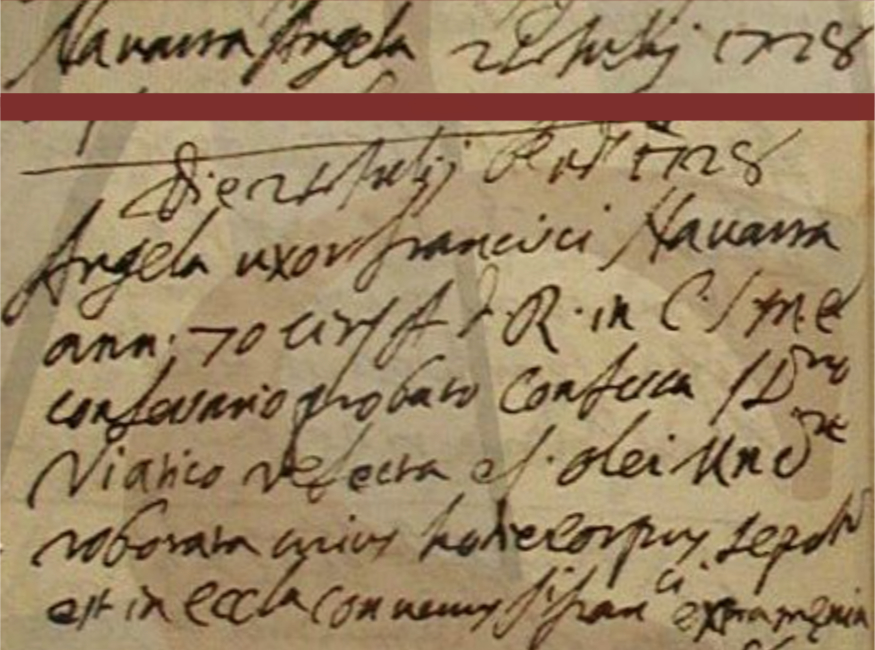 Navarra Angela 24 Julij 1728
Die 24 Julij 1728
Angela uxor Francisci Navarra
ann. 70 A. D. R. in C. S. M. E
confessario probato Confessa S D
Viatico refecta et S. olei Unc
roborata cuius hodie corpus sepult
est in eccla conventus S. Fran ci extra menia